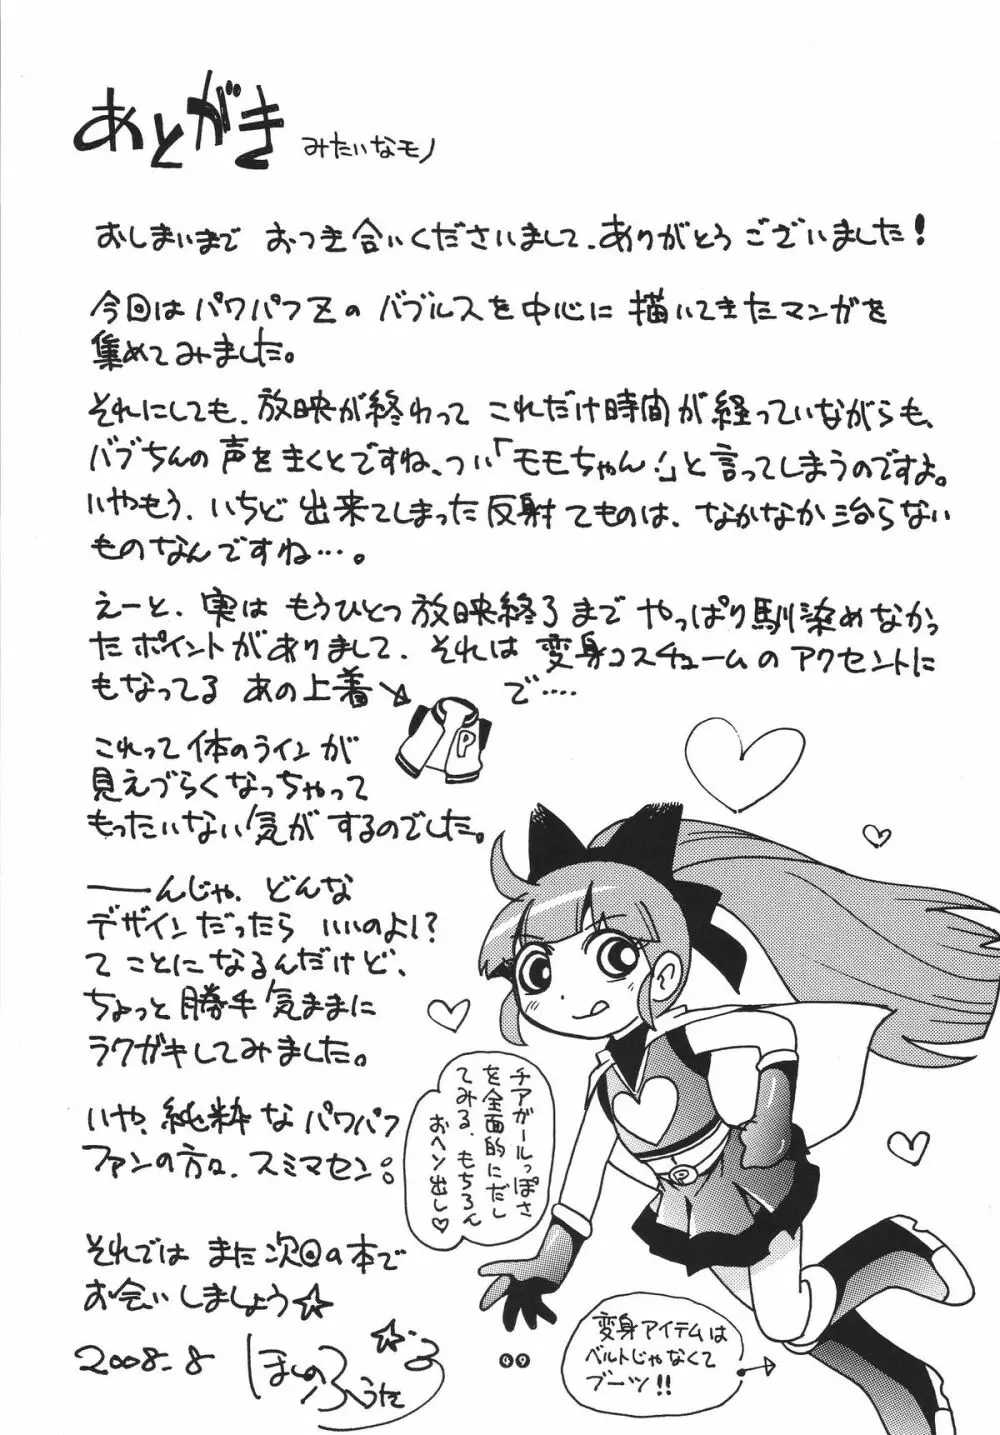 あとがき みたいなモノ
おしまいまで おつき合いくださいまして、ありがとうございました!
今回は パワパフZの バブルスを中心に 描いてきたマンガを
集めてみました。
それにしても、放映が終わって これだけ時間が経っていながらも、
バブちんの声をきくとですね、つい「モモちゃん!」と言ってしまうのですよ。
いやもう、いちど 出来てしまった反射てものは、なかなか治らない
ものなんですね…。
えーと、実は もうひとつ 放映終了まで やっぱり馴染めなかっ
たポイントがありまして、それは 変身コスチュームの アクセントに
もなってる あの上着 で‥‥
P
これって 体のラインが
見えづらくなっちゃって
もったいない気が するのでした。
――んじゃ、どんな
デザインだったら いいのよ!?
てことになるんだけど、
ちょっと勝手気ままに
ラクガキしてみました。
いや、純粋な パワパフ
ファンの方々、スミマセン。
それでは また次回の本で
お会いしましょう☆
2008.8 ほしのふうた
チアガールっぽさ
を全面的にだし
てみる、もちろん
おヘソ出し♡
P
変身アイテムは
ベルトじゃなくて
ブーツ!!
49